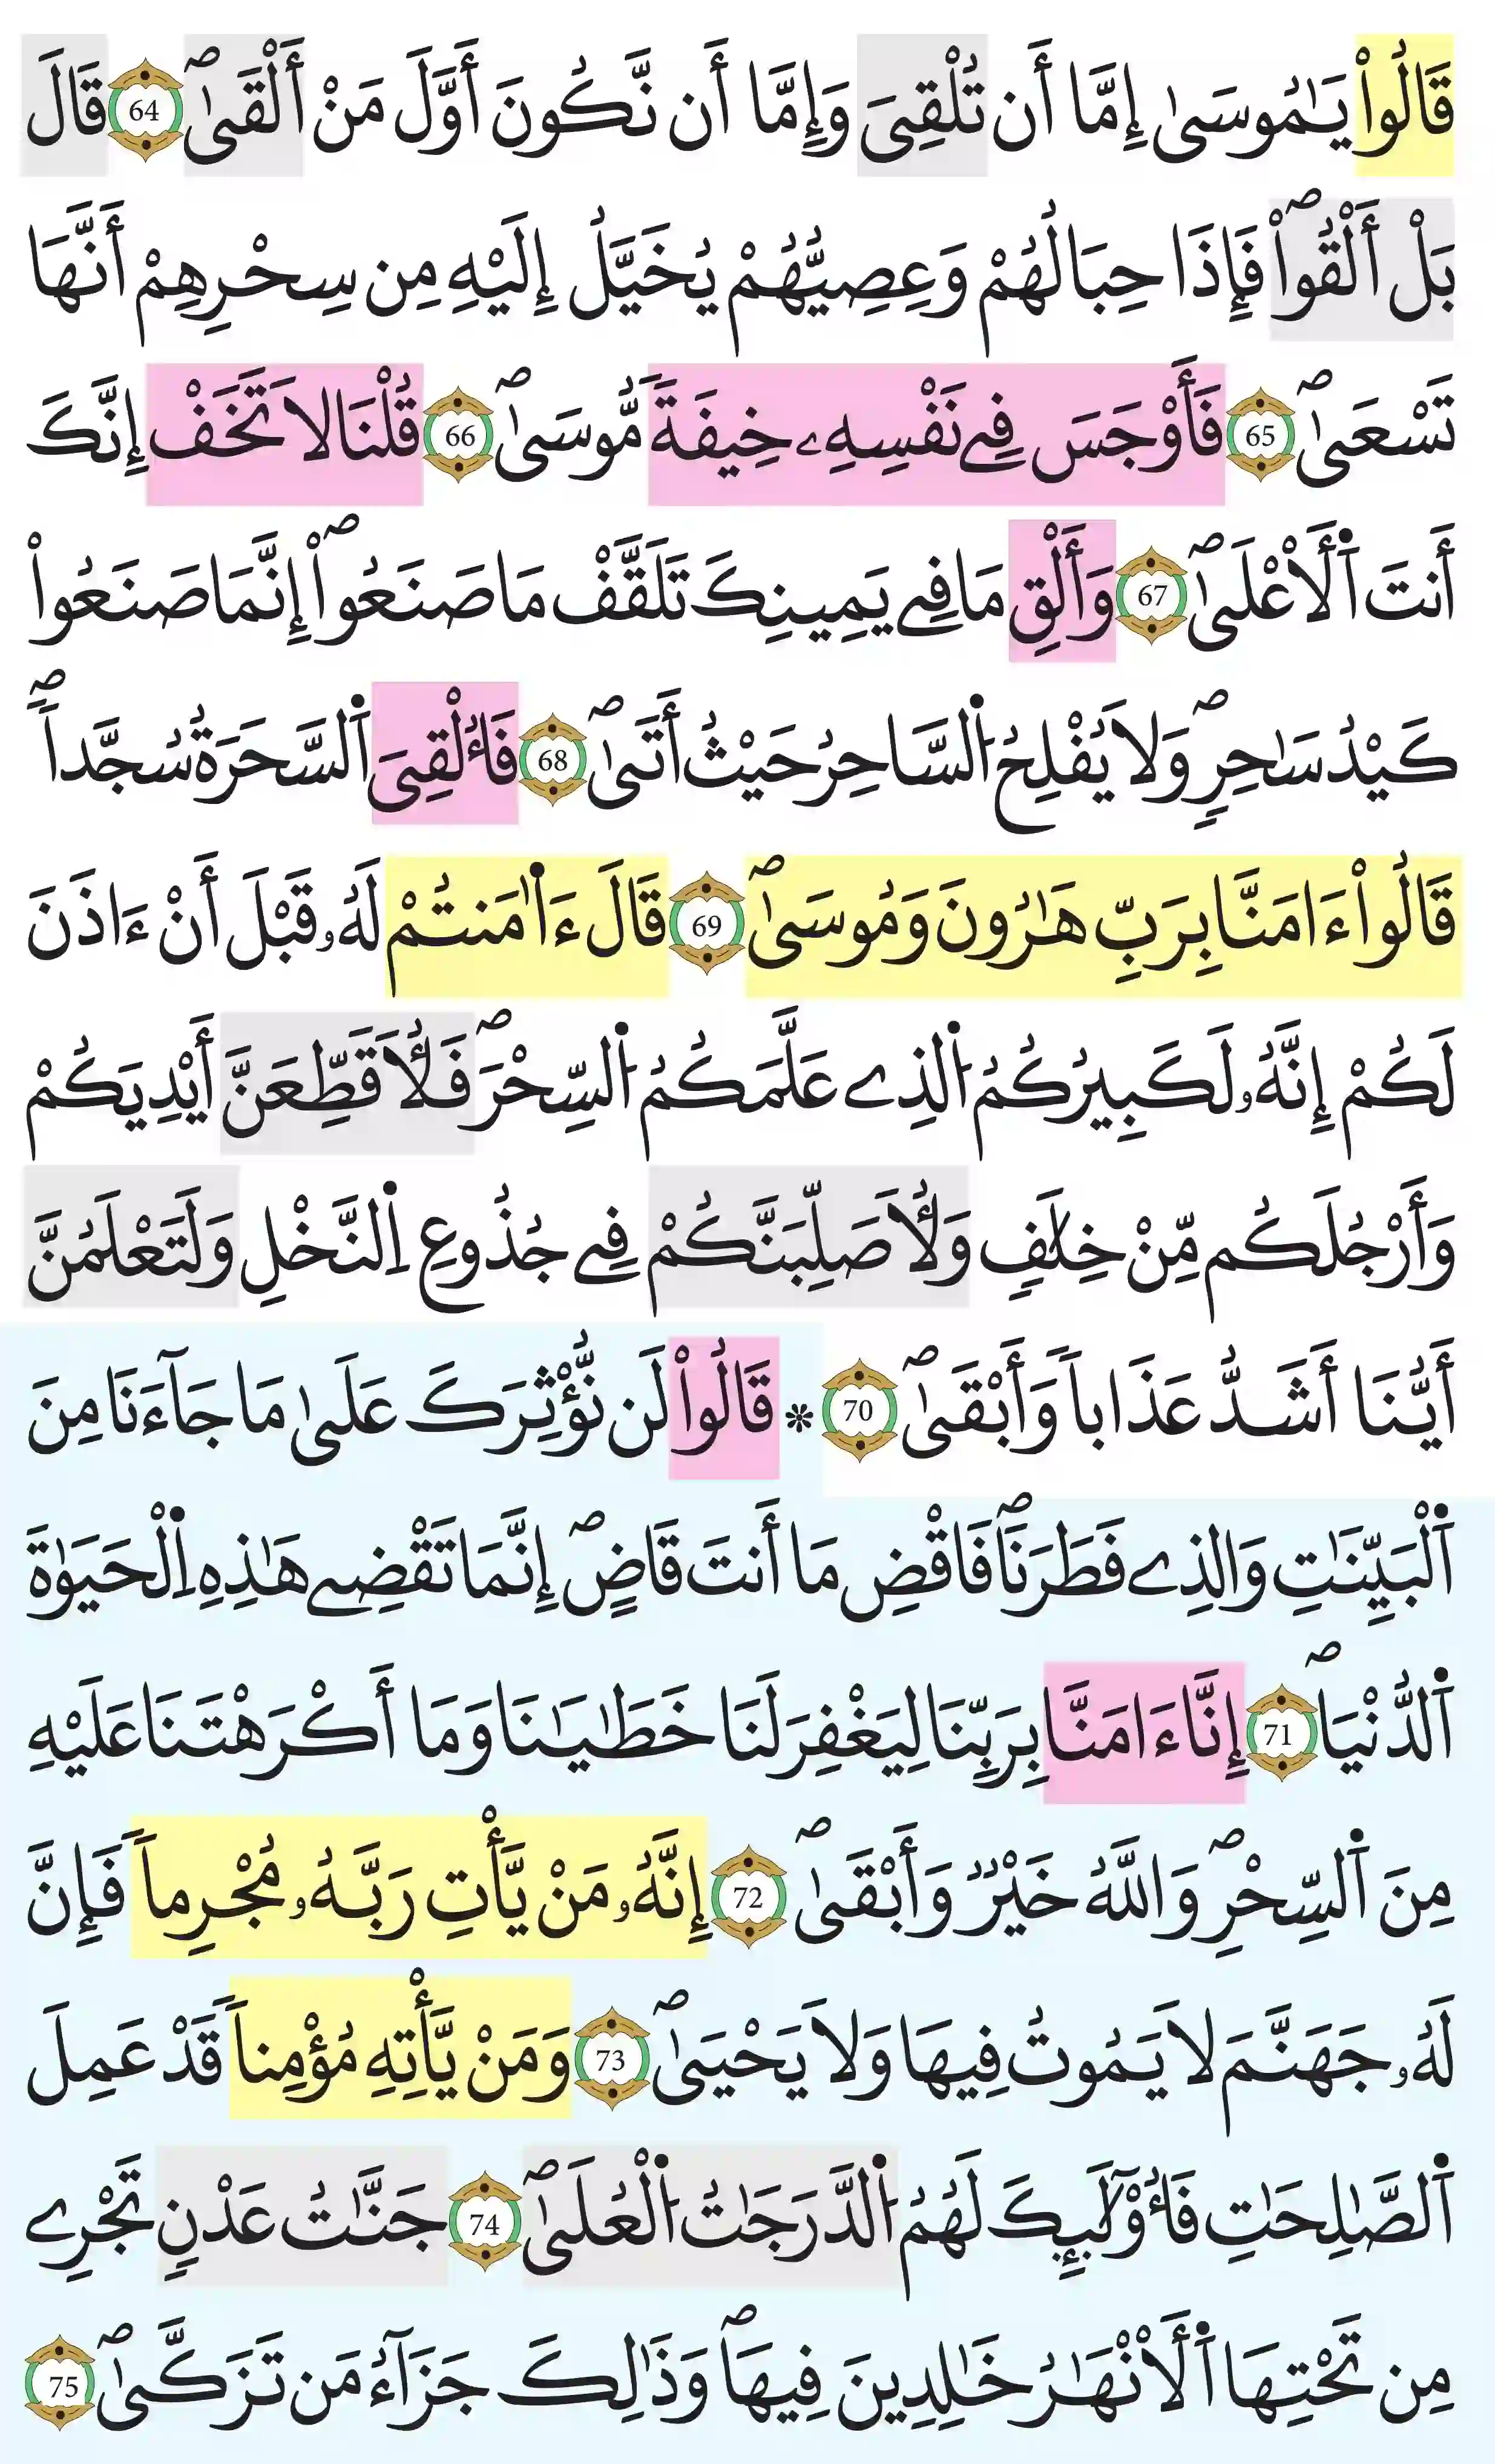 قَالُواْ يَٰمُوسَىٰ إِمَّا أَن تُلْقِىَ وَإِمَّا أَن نَّكُونَ أَوَّلَ مَنْ أَلْقَىٰۖ 64 قَالَ
بَلْ أَلْقُواْۖ فَإِذَا حِبَالُهُمْ وَعِصِيُّهُمْ يُخَيَّلُ إِلَيْهِ مِن سِحْرِهِمْ أَنَّهَا
تَسْعَىٰۖ 65 فَأَوْجَسَ فِے نَفْسِهِۦ خِيفَةٗ مُّوسَىٰۖ 66 قُلْنَا لَا تَخَفْ إِنَّكَ
أَنتَ اَ۬لْأَعْلَىٰۖ 67 وَأَلْقِ مَا فِے يَمِينِكَ تَلَقَّفْ مَا صَنَعُواْۖ إِنَّمَا صَنَعُواْ
كَيْدُ سَٰحِرٖۖ وَلَا يُفْلِحُ اُ۬لسَّاحِرُ حَيْثُ أَتَىٰۖ 68 فَأُلْقِىَ اَ۬لسَّحَرَةُ سُجَّداٗۖ
قَالُواْ ءَامَنَّا بِرَبِّ هَٰرُونَ وَمُوسَىٰۖ 69 قَالَ ءَا۬مَنتُمْ لَهُۥ قَبْلَ أَنْ ءَاذَنَ
لَكُمْ إِنَّهُۥ لَكَبِيرُكُمُ اُ۬لذِے عَلَّمَكُمُ اُ۬لسِّحْرَۖ فَلَأُقَطِّعَنَّ أَيْدِيَكُمْ
وَأَرْجُلَكُم مِّنْ خِلَٰفٖ وَلَأُصَلِّبَنَّكُمْ فِے جُذُوعِ اِ۬لنَّخْلِ وَلَتَعْلَمُنَّ
أَيُّنَا أَشَدُّ عَذَاباٗ وَأَبْقَىٰۖ 70 * قَالُواْ لَن نُّؤْثِرَكَ عَلَىٰ مَا جَآءَنَا مِنَ
اَ۬لْبَيِّنَٰتِ وَالذِے فَطَرَنَاۖ فَاقْضِ مَا أَنتَ قَاضٍۖ إِنَّمَا تَقْضِے هَٰذِهِ اِ۬لْحَيَوٰةَ
اَ۬لدُّنْيَاۖ 71 إِنَّا ءَامَنَّا بِرَبِّنَا لِيَغْفِرَ لَنَا خَطَٰيَٰنَا وَمَا أَكْرَهْتَنَا عَلَيْهِ
مِنَ اَ۬لسِّحْرِۖ وَاللَّهُ خَيْرٞ وَأَبْقَىٰۖ 72 إِنَّهُۥ مَنْ يَّأْتِ رَبَّهُۥ مُجْرِماٗ فَإِنَّ
لَهُۥ جَهَنَّمَ لَا يَمُوتُ فِيهَا وَلَا يَحْيَىٰۖ 73 وَمَنْ يَّأْتِهِ مُؤْمِناٗ قَدْ عَمِلَ
اَ۬لصَّٰلِحَٰتِ فَأُوْلَٰٓئِكَ لَهُمُ اُ۬لدَّرَجَٰتُ اُ۬لْعُلَىٰۖ 74 جَنَّٰتُ عَدْنٖ تَجْرِے
مِن تَحْتِهَا اَ۬لْأَنْهَٰرُ خَٰلِدِينَ فِيهَاۖ وَذَٰلِكَ جَزَآءُ مَن تَزَكَّىٰۖ 75